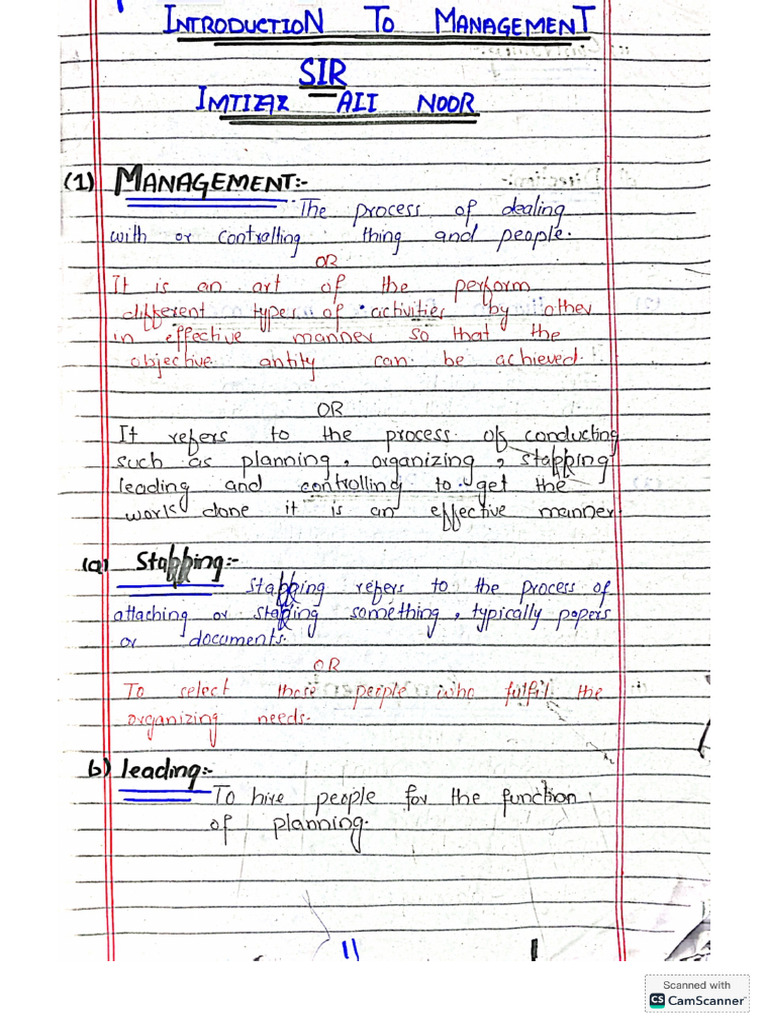 INTRODUCTION TO MANAGEMENT
SIR
IMTIZAZ ALI NOOR
(1) MANAGEMENT:-
The process of dealing
with or controlling thing and people.
OR
It is an art of the perform
different types of activities by other
in effective manner so that the
objective antity can be achieved.
OR
It refers to the process of conducting
such as planning, organizing, staffing
leading and controlling to get the
work done it is an effective manner
(a) Staffing:-
Staffing refers to the process of
attaching or stapling something, typically papers
or documents.
OR
To select those people who fulfil the
organizing needs.
b) leading:-
To hire people for the function
of planning.
Scanned with
CS CamScanner